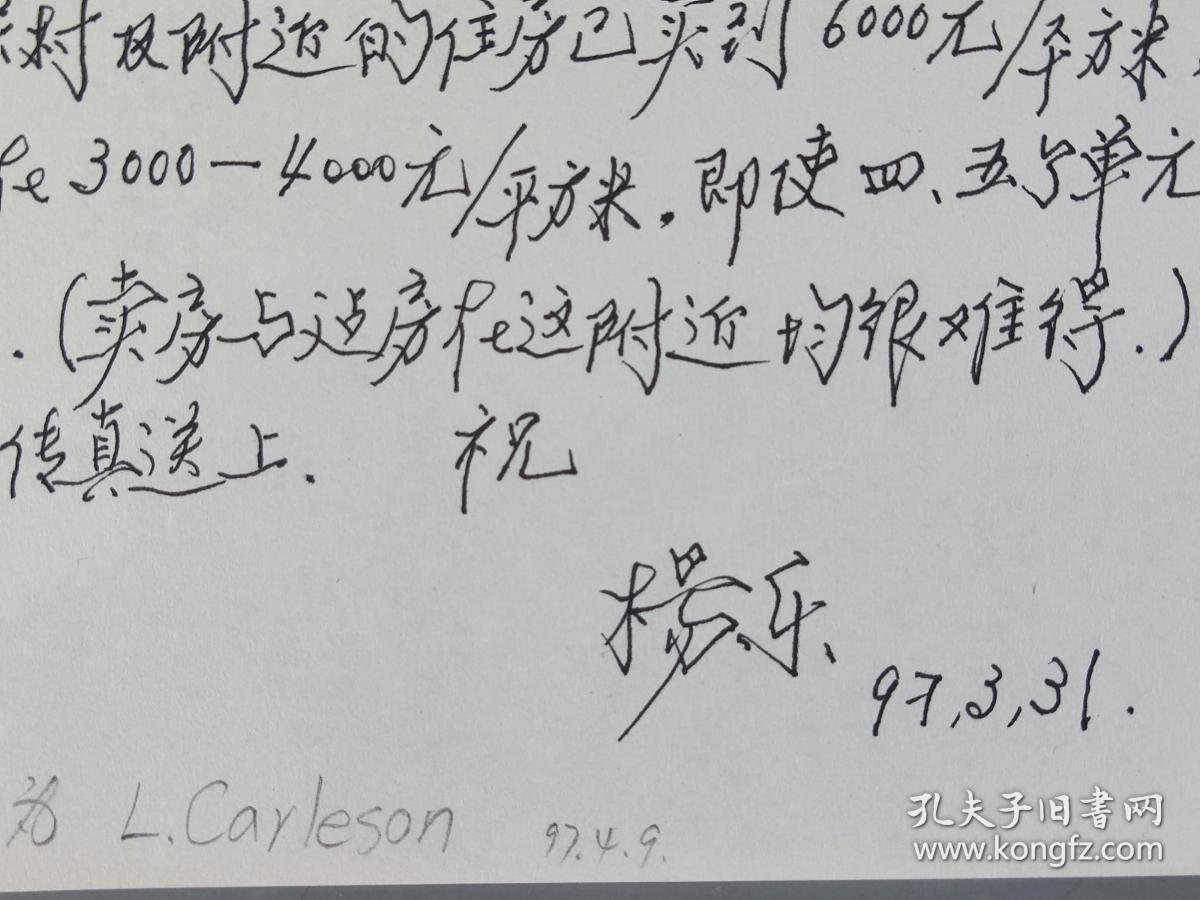 村及附近的住房已卖到6000元/平方米,
在3000—4000元/平方米.即使四、五个单元
.(卖房与造房在这附近均很难得.)
传真送上. 祝
杨乐
97,3,31.
L.Carleson 97.4.9.
孔夫子旧书网
www.kongfz.com